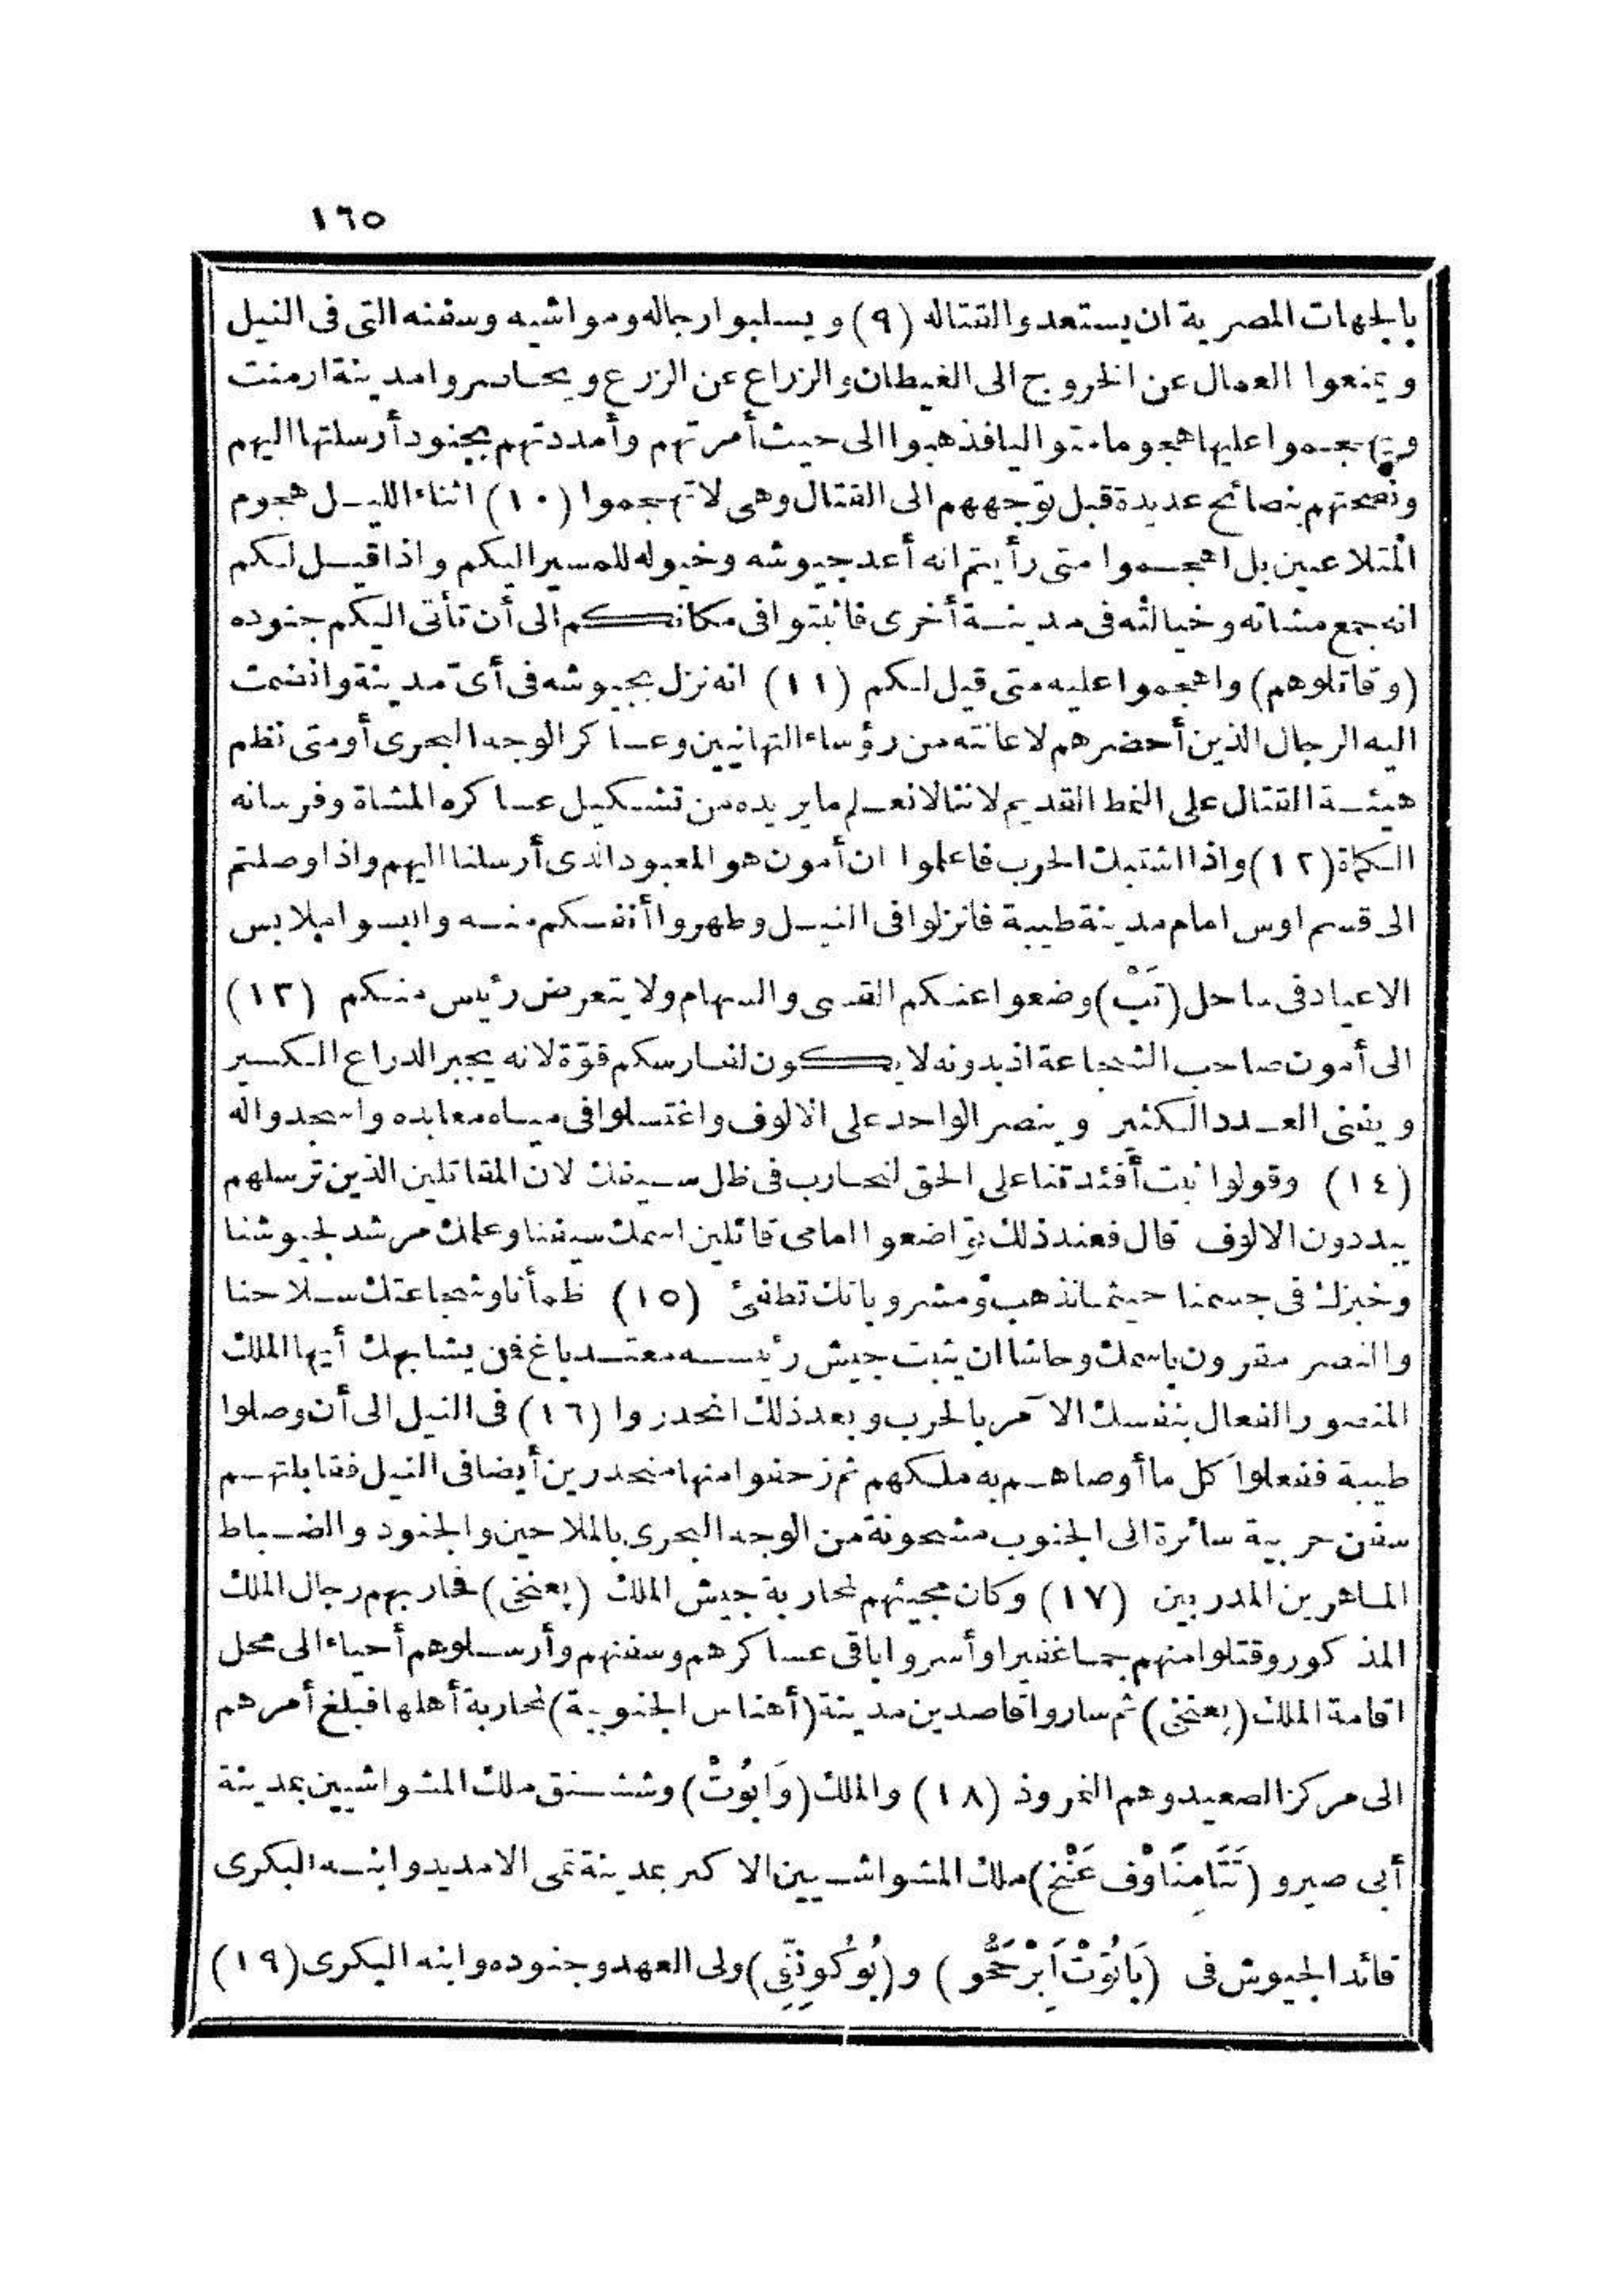 ١٦٥
بالجهات المصرية ان يستعدوا لقتاله (٩) ويسلبوا رجاله ومواشيه وسفنه التى فى النيل
ويمنعوا العمال عن الخروج الى الغيطان والزراع عن الزرع ويحاصروا مدينة ارمنت
ويهجموا عليها هجوما متواليا فذهبوا الى حيث أمرتهم وأمددتهم بجنود أرسلتها اليهم
ونصحتهم بنصائح عديدة قبل توجههم الى القتال وهى لا تهجموا (١٠) اثناء الليل هجوم
المتلاعبين بل اهجموا متى رأيتم انه أعد جيوشه وخيوله للمسير اليكم واذا قيل لكم
انه جمع مشاته وخيالته فى مدينة أخرى فاثبتوا فى مكانكم الى أن تأتى اليكم جنوده
(وقاتلوهم) واهجموا عليه متى قيل لكم (١١) انه نزل بجيوشه فى أى مدينة وانضمت
اليه الرجال الذين أحضرهم لاعانته من رؤساء التهانيين وعساكر الوجه البحرى أو متى نظم
هيئة القتال على النمط القديم لاننا لا نعلم ما يريده من تشكيل عساكره المشاة وفرسانه
الكماة (١٢) واذا اشتبك الحرب فاعلموا ان أمون هو المعبود الذى أرسلنا اليهم واذا وصلتم
الى قسم اوس امام مدينة طيبة فانزلوا فى النيل وطهروا أنفسكم منه والبسوا ملابس
الاعياد فى ساحل (تَبْ) وضعوا عنكم القسى والسهام ولا يتعرض رئيس منكم (١٣)
الى أمون صاحب الشجاعة اذ بدونه لا يكون لفارسكم قوّة لانه يجبر الدراع الكسير
ويفنى العدد الكثير وينصر الواحد على الالوف واغتسلوا فى مياه معابده واسجدوا له
(١٤) وقولوا ثبت أفئدتنا على الحق لنحارب فى ظل سيفك لان المقاتلين الذين ترسلهم
يبددون الالوف قال فعند ذلك تواضعوا امامى قائلين اسمك سيفنا وعلمك مرشد لجيوشنا
وخبزك فى جسمنا حيثما نذهب ومشروباتك تطفئ (١٥) ظمأنا وشجاعتك سلاحنا
والنصر مقرون باسمك وحاشا ان يثبت جيش رئيسه معتد باغ فمن يشابهك أيها الملك
المنصور الفعال بنفسك الآمر بالحرب وبعد ذلك انحدروا (١٦) فى النيل الى أن وصلوا
طيبة ففعلوا كل ما أوصاهم به ملكهم ثم زحفوا منها منحدرين أيضا فى النيل فقابلتهم
سفن حربية سائرة الى الجنوب مشحونة من الوجه البحرى بالملاحين والجنود والضباط
الماهرين المدربين (١٧) وكان مجيئهم لمحاربة جيش الملك (بعنخى) فحاربهم رجال الملك
المذكور وقتلوا منهم جما غفيرا وأسروا باقى عساكرهم وسفنهم وأرسلوهم أحياء الى محل
اقامة الملك (بعنخى) ثم ساروا قاصدين مدينة (أهناس الجنوبية) لمحاربة أهلها فبلغ أمرهم
الى مركز الصعيد وهم النمروذ (١٨) والملك (وَابُوتْ) وششنق ملك المشواشيين بمدينة
أبى صير و (تَتَامِنَاوْف عَنْخ) ملك المشواشيين الاكبر بمدينة تمى الامديد وابنه البكرى
قائد الجيوش فى (بَاتُوتْ اَبِرْحَحُو) و (بُوكُونِنِّفِى) ولى العهد وجنوده وابنه البكرى (١٩)